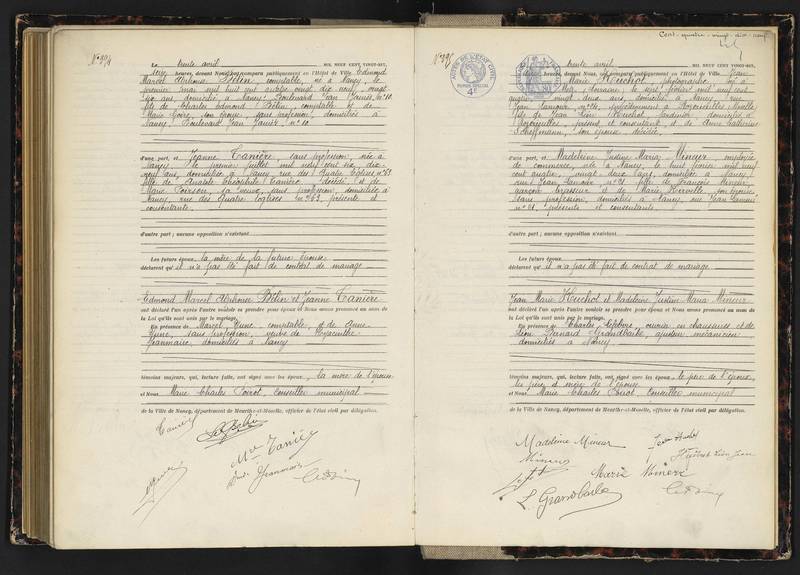 Le trente avril MIL NEUF CENT VINGT-SIX,
heures, devant Nous ont comparu publiquement en l'Hôtel de Ville Edmond
Marcel Alphonse Bélin, comptable, né à Nancy le
premier mai mil huit cent quatre vingt dix neuf, vingt
six ans, domicilié à Nancy Boulevard Jean Jaurès n° 10
fils de Charles Edmond Bélin, comptable et de
Marie Goire, son épouse, sans profession, domiciliés à
Nancy, Boulevard Jean Jaurès n° 10.
d'une part, et Jeanne Tanière, sans profession, née à
Nancy le premier juillet mil neuf cent six, dix-
neuf ans, domiciliée à Nancy rue des Quatre Eglises n° 63
fille de Anatole Théophile Tanière, décédé et de
Marie Poirson, sa veuve, sans profession, domiciliée à
Nancy, rue des Quatre Eglises n° 63, présente et
consentante.
d'autre part; aucune opposition n'existant
Les futurs époux, la mère de la future épouse
déclarent qu'il n'a pas été fait de contrat de mariage
Edmond Marcel Alphonse Bélin et Jeanne Tanière
ont déclaré l'un après l'autre vouloir se prendre pour époux et Nous avons prononcé au nom de
la Loi qu'ils sont unis par le mariage.
En présence de Marcel comptable, et de Anne
sans profession, veuve de Hyacinthe
domiciliés à Nancy
témoins majeurs, qui, lecture faite, ont signé avec les époux, la mère de l'épouse
et Nous Marie Charles Poirot, Conseiller municipal
de la Ville de Nancy, département de Meurthe-et-Moselle, officier de l'état civil par délégation.
Cent-quatre-vingt-dix-neuf
ACTES DE L'ETAT CIVIL
PAPIER SPECIAL
4F
trente avril MIL NEUF CENT VINGT-SIX,
heures, devant Nous ont comparu publiquement en l'Hôtel de Ville Jean
Marie Huchot, photographe, né à
Lorraine, le sept février mil neuf cent
quatre, vingt-deux ans, domicilié à Nancy, rue
Jean Lamour n°
fils de Jean Léon Huchot, jardinier, domicilié à
présent et consentant, et de Anne Catherine
son épouse, décédée
d'une part, et Madeleine Justine Maria Mineur, employée
de commerce, née à Nancy le huit février mil neuf
cent quatre, vingt-deux ans, domiciliée à Nancy
rue Jean Lamour n° 21, fille de François Mineur,
garçon brasseur et de Marie son épouse
sans profession, domiciliés à Nancy, rue Jean Lamour
n° 21, présents et consentants.
d'autre part; aucune opposition n'existant
Les futurs époux
déclarent qu'il n'a pas été fait de contrat de mariage
Jean Marie Huchot et Madeleine Justine Maria Mineur
ont déclaré l'un après l'autre vouloir se prendre pour époux et Nous avons prononcé au nom de
la Loi qu'ils sont unis par le mariage.
En présence de Charles Lefebvre, ouvrier en chaussures et de
Léon Bernard ajusteur mécanicien
domiciliés à Nancy
témoins majeurs, qui, lecture faite, ont signé avec les époux, le père de l'époux,
les père et mère de l'épouse
et Nous Marie Charles Poirot, Conseiller municipal
de la Ville de Nancy, département de Meurthe-et-Moselle, officier de l'état civil par délégation.
Madeleine Mineur
Mineur
Marie